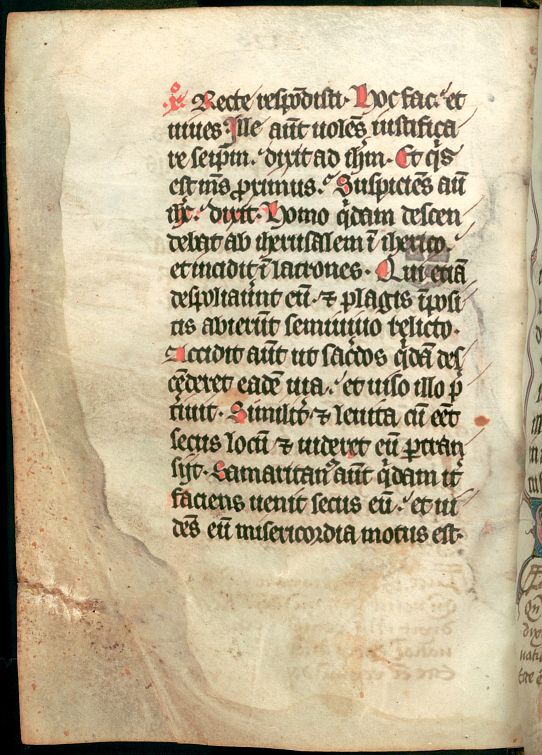 Recte respōdisti. Hoc fac. et
uiues. Ille aūt uolēs iustifica
re seip̄m. dixit ad ih̄m. Et q̄s
est m̄s ꝓximus. Suspiciēs aūt
ih̄c. dixit. Homo q̄dam descen
debat ab iherusalem ī iherico.
et incidit ī latrones. Qui etiā
despoliauer̄nt eū. ⁊ plagis īposi
tis abier̄nt semiuiuo relicto.
Accidit aūt ut sac̄dos q̄dā des
cēderet eadē uia. et uiso illo p̄
t̄iuit. Similit̄ ⁊ leuita cū eēt
secus locū ⁊ uideret eū ꝑtran
sijt. Samaritan᷒ aūt q̄dam it̄
faciens uenit secus eū. et ui
dēs eū misericordia motus est.